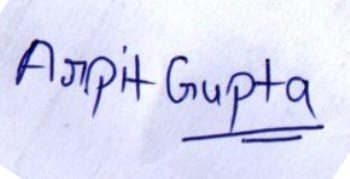 Arpit Gupta